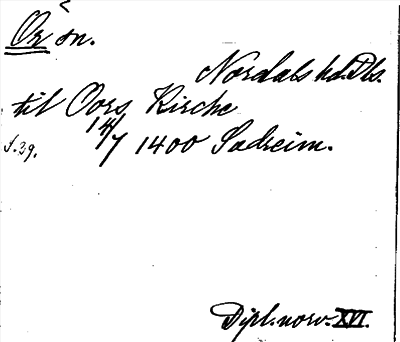 Or sn.
Nordals hd. Dls.
til Oors Kirche
S. 39. 14/7 1400 Sudreim.
Dipl. norv. XVI.